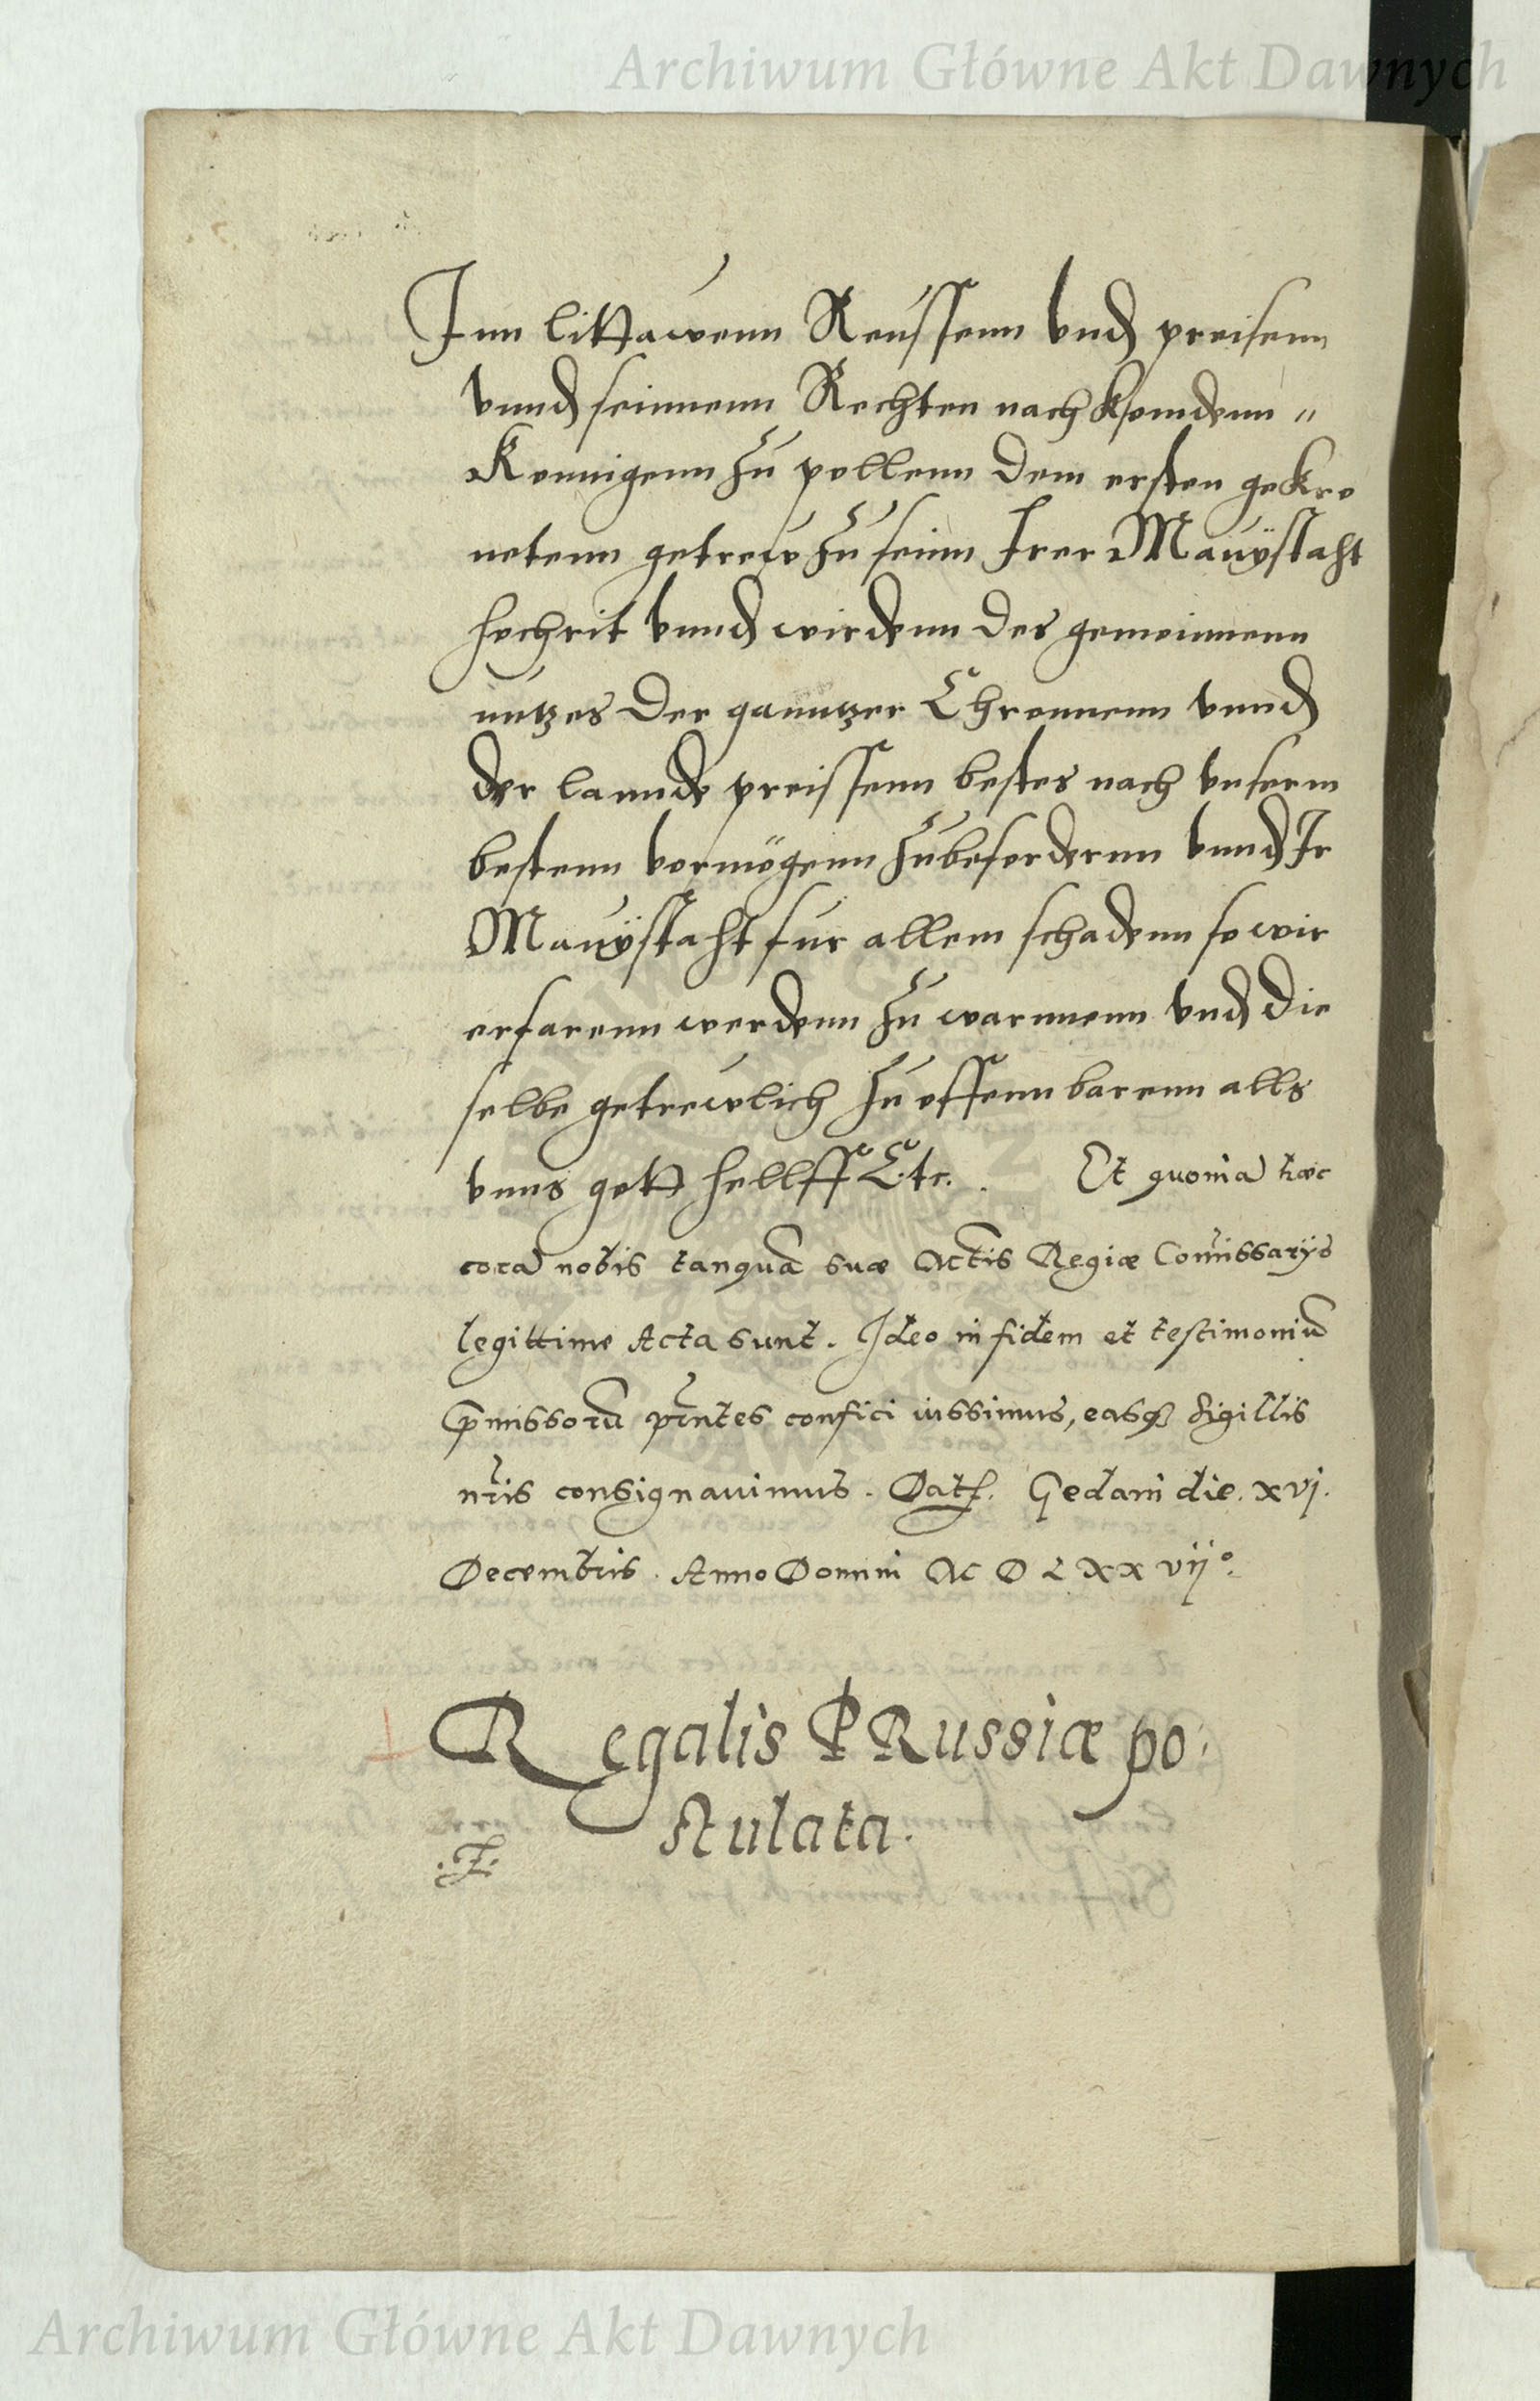 Archiwum Główne Akt Dawnych
Jnn littawenn Reussenn vnd preisenn
vnnd seinnenn Rechten nach komdenn "
Konnigenn zu pollenn dem ersten gekro
netenn getrew zu seinn Irer Mauÿstaht
hochrit vnnd wirdenn des gemeinnenn
nutzes der ganntzer Chronnenn vnnd
der lannde preissenn bestes nach vnserm
bestenn vormögenn zubefordernn vnnd Ir
Mauÿstaht fur allem schadenn so wir
erfarenn werdenn zu warnnenn vnd die
selbe getrewlich zu offennbarenn alls
vnns gott hellff Etc. Et quonia hæc
cora nobis tanqua suæ Mtis Regiæ Comissarijs
legittime Acta sunt. Ideo in fidem et testimoniu
pmissoru pntes confici iussimus, easq sigillis
nris consignauimus. Dat. Gedani die. xvj.
Decembris. Anno Domini M D L X x vij°.
Regalis PRussiæ po.
stulata.
Archiwum Główne Akt Dawnych